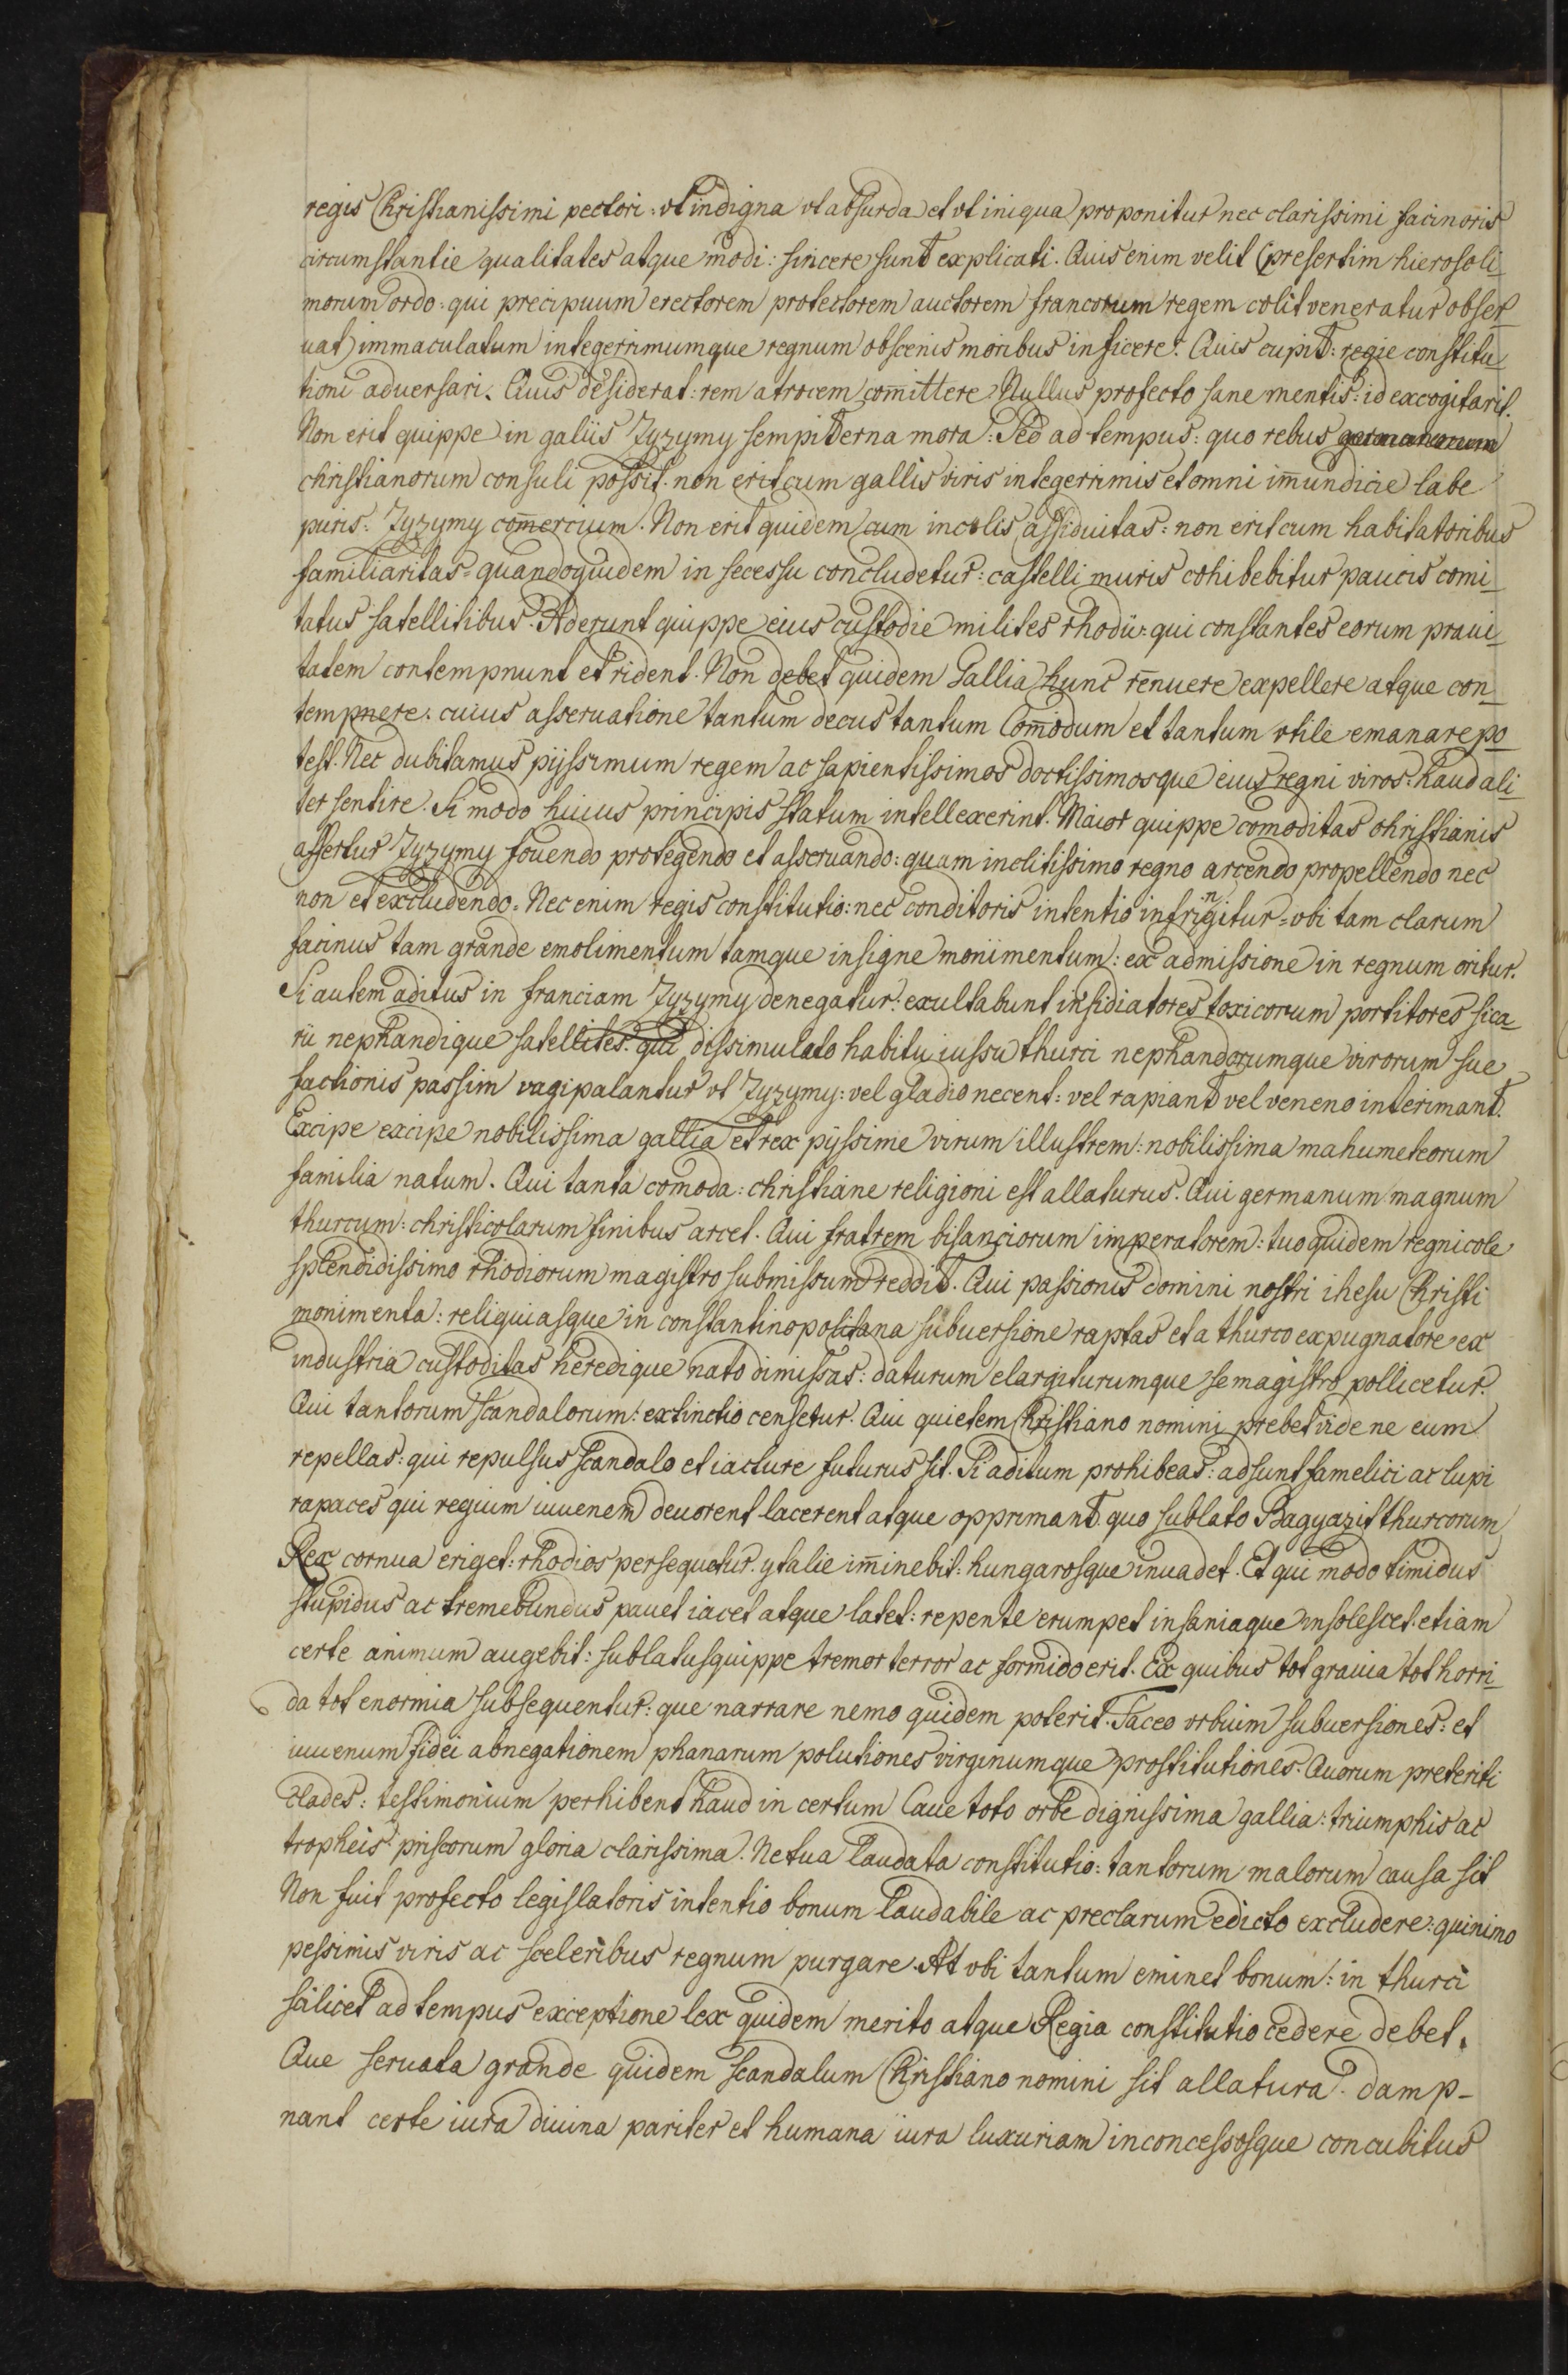 regis Christianissimi pectori: vt indigna vt absurda et vt iniqua proponitur nec clarissimi facinoris
circumstantie qualitates atque modi: sincere sunt explicati. Quis enim velit (presertim hierosoli-
morum ordo: qui precipuum erectorem protectorem auctorem francorum regem colit veneratur obser-
uat) immaculatum integerrimumque regnum obscenis moribus inficere? Quis cupit: regie constitu-
tioni aduersari. Quis desiderat: rem atrocem com̄ittere? Nullus profecto sane mentis: id excogitarit.
Non erit quippe in galiis Zyzymy sempiterna mora: Sed ad tempus: quo rebus
christianorum consuli possit. non erit cum gallis viris integerrimis et omni im̄undicie labe
puris: Zyzymy com̄ercium. Non erit quidem cum incolis assiduitas: non erit cum habitatoribus
familiaritas: quandoquidem in secessu concludetur: castelli muris cohibebitur paucis comi-
tatus satellitibus. Aderunt quippe eius custodie milites rhodii: qui constantes eorum praui-
tatem contempnunt et rident. Non debet quidem Gallia hunc rēnuere expellere atque con-
tempnere. cuius asseruatione tantum decus tantum Com̄odum et tantum vtile emanare po-
test. Nec dubitamus pijssimum regem ac sapientissimos doctissimosque eius regni viros: haud ali-
ter sentire. Si modo huius principis statum intellexerint. Maior quippe comoditas christianis
affertur Zyzymy fouendo protegendo et asseruando: quam inclitissimo regno arcendo propellendo nec
non et excludendo. Nec enim regis constitutio: nec conditoris intentio infringitur: vbi tam clarum
facinus tam grande emolimentum tamque insigne monimentum: ex admissione in regnum oritur.
Si autem aditus in franciam Zyzymy denegatur: exultabunt insidiatores toxicorum portitores sica-
rii nephandique satellites. qui dissimulato habitu iussu thurci nephandorumque virorum sue
factionis passim vagi palantur vt Zyzymy: vel gladio necent: vel rapiant vel veneno interimant.
Excipe excipe nobilissima gallia et rex pijssime virum illustrem: nobilissima mahumeteorum
familia natum. Qui tanta comoda: christiane religioni est allaturus. Qui germanum magnum
thurcum: christicolarum finibus arcet. Qui fratrem bisanciorum imperatorem: tuo quidem regnicole
splendidissimo rhodiorum magistro submissum reddit. Qui passionis domini nostri ihesu Christi
monimenta: reliquiasque in constantinopolitana subuersione raptas et a thurco expugnatore ex
industria custoditas heredique nato dimissas: daturum elargiturumque se magistro pollicetur.
Qui tantorum scandalorum: extinctio censetur. Qui quietem Christiano nomini prebet vide ne eum
repellas: qui repulsus scandalo et iacture futurus sit. Si aditum prohibeas: adsunt famelici ac lupi
rapaces qui regium iuuenem deuorent lacerent atque opprimant. quo sublato Bagyazit thurcorum
Rex cornua eriget: rhodios persequetur. ytalie im̄inebit: hungarosque inuadet. Et qui modo timidus
stupidus ac tremebundus pauet iacet atque latet: repente erumpet insaniaque insolescet. etiam
certe animum augebit: sublatusquippe tremor terror ac formido erit. Ex quibus tot grauia tot horri-
da tot enormia subsequentur: que narrare nemo quidem poterit. Taceo vrbium subuersiones: et
iuuenum fidei abnegationem phanarum polutiones virginumque prostitutiones. Quorum preteriti
clades: testimonium perhibent haud in certum Caue toto orbe dignissima gallia: triumphis ac
tropheis priscorum gloria clarissima. Ne tua laudata constitutio: tantorum malorum causa sit
Non fuit profecto legislatoris intentio bonum laudabile ac preclarum edicto excludere: quinimo
pessimis viris ac sceleribus regnum purgare. At vbi tantum eminet bonum: in thurci
scilicet ad tempus exceptione lex quidem merito atque Regia constitutio cedere debet.
Que seruata grande quidem scandalum Christiano nomini sit allatura. damp-
nant certe iura diuina pariter et humana iura luxuriam inconcessosque concubitus